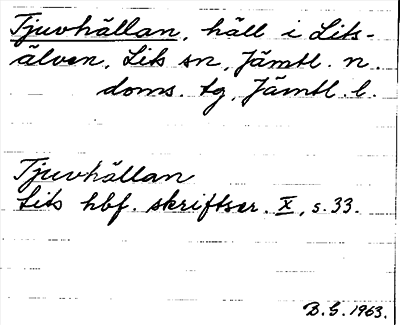 Tjuvhällan, häll i Lits-
älven, Lits sn, Jämtl. n.
doms. tg, Jämtl. l.
Tjuvhällan
Lits hbf. skriftser. X, s. 33.
B.G. 1963.